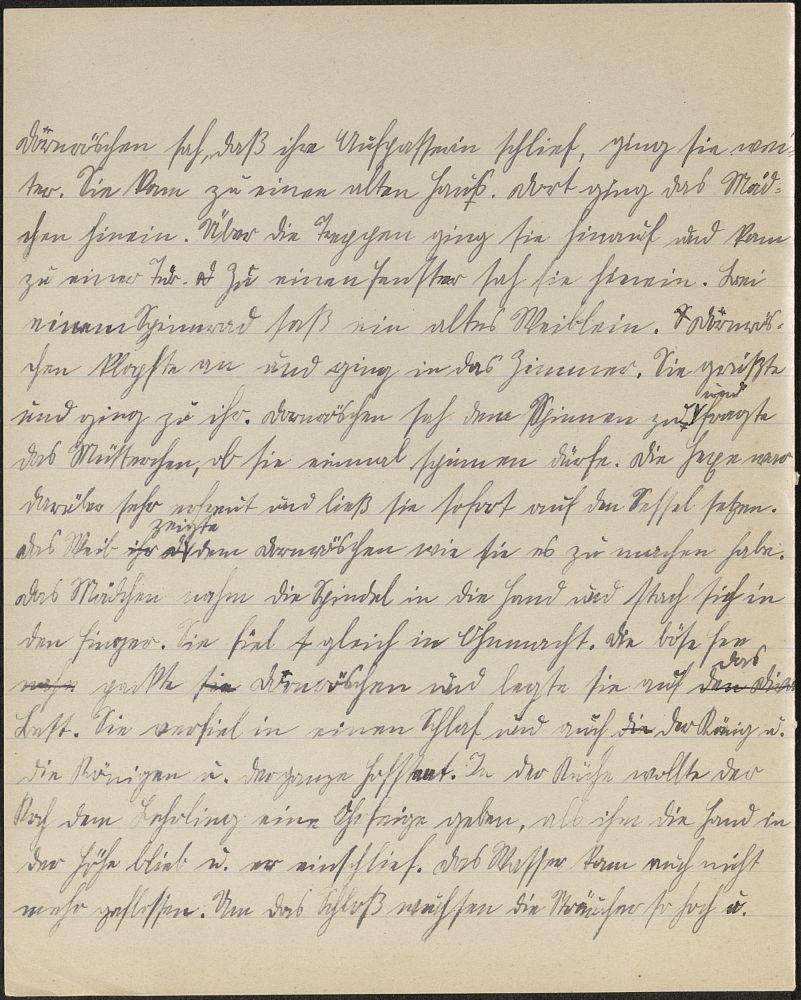 Dörnröschen sah, daß ihre Aufpasserin schlief, ging sie wei-
ter. Sie kam zu einen alten Hauß. Dort ging das Mäd-
chen hinein. Über die Treppen ging sie hinauf und kam
zu einer Tür. Zu einen Fenster sah sie hinein. Bei
einem Spinnrad saß ein altes Weiblein. Dörnrös-
chen klopfte an und ging in das Zimmer. Sie grüßte
und ging zu ihr. Dornröschen sah dem Spinnen zu und fragte
das Mütterchen, ob sie einmal spinnen dürfe. Die Hexe war
darüber sehr erfreut und ließ sie sofort auf den Sessel setzen.
Das Weib ihr zeigte dem Dornröschen wie sie es zu machen habe.
Das Mädchen nahm die Spindel in die Hand und stach sich in
den Finger. Sie fiel gleich in Ohnmacht. Die böse Fee
nahm packte sie Dörnröschen und legte sie auf den das
Bett. Sie verfiel in einen Schlaf und auch die der König u.
die Königen u. der ganze Hofstaat. In der Küche wollte der
Koch dem Lehrling eine Ohrfeige geben, als ihm die Hand in
der Höhe blieb u. er einschlief. Das Wasser kam auch nicht
mehr geflossen. Um das Schloß wuchsen die Sträucher so hoch u.